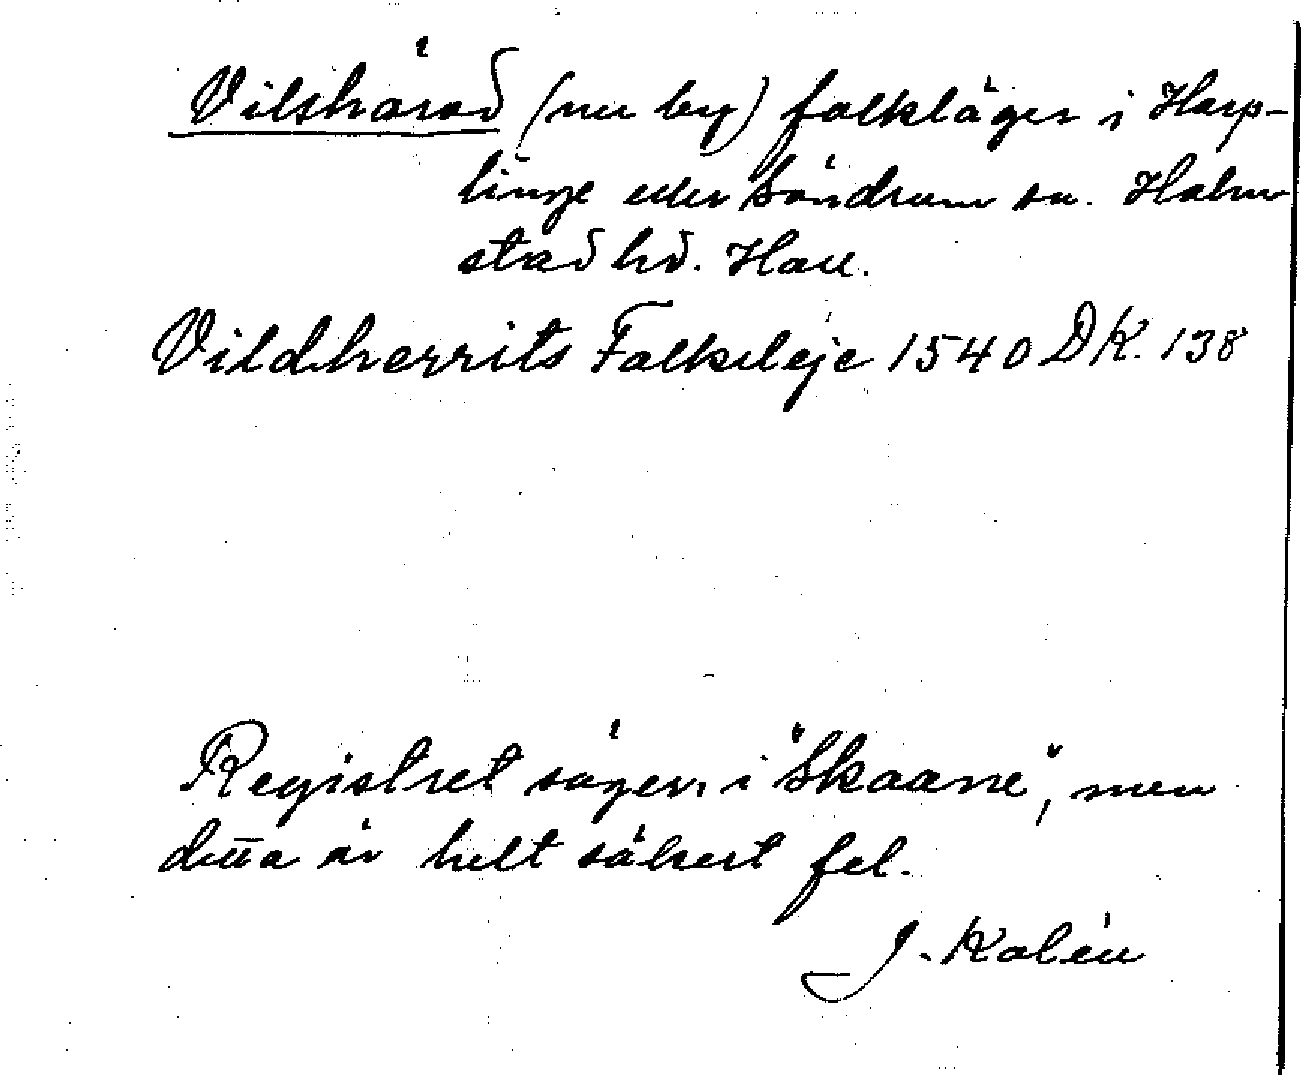 Vilshärad (nu by) folkläger i Harp-
linge eller Söndrum sn. Halm
stad hd. Hall.
Vildherrits Falkeleje 1540 DK. 138
Registret säger i "Skaane", men
detta är helt säkert fel.
J. Kalén